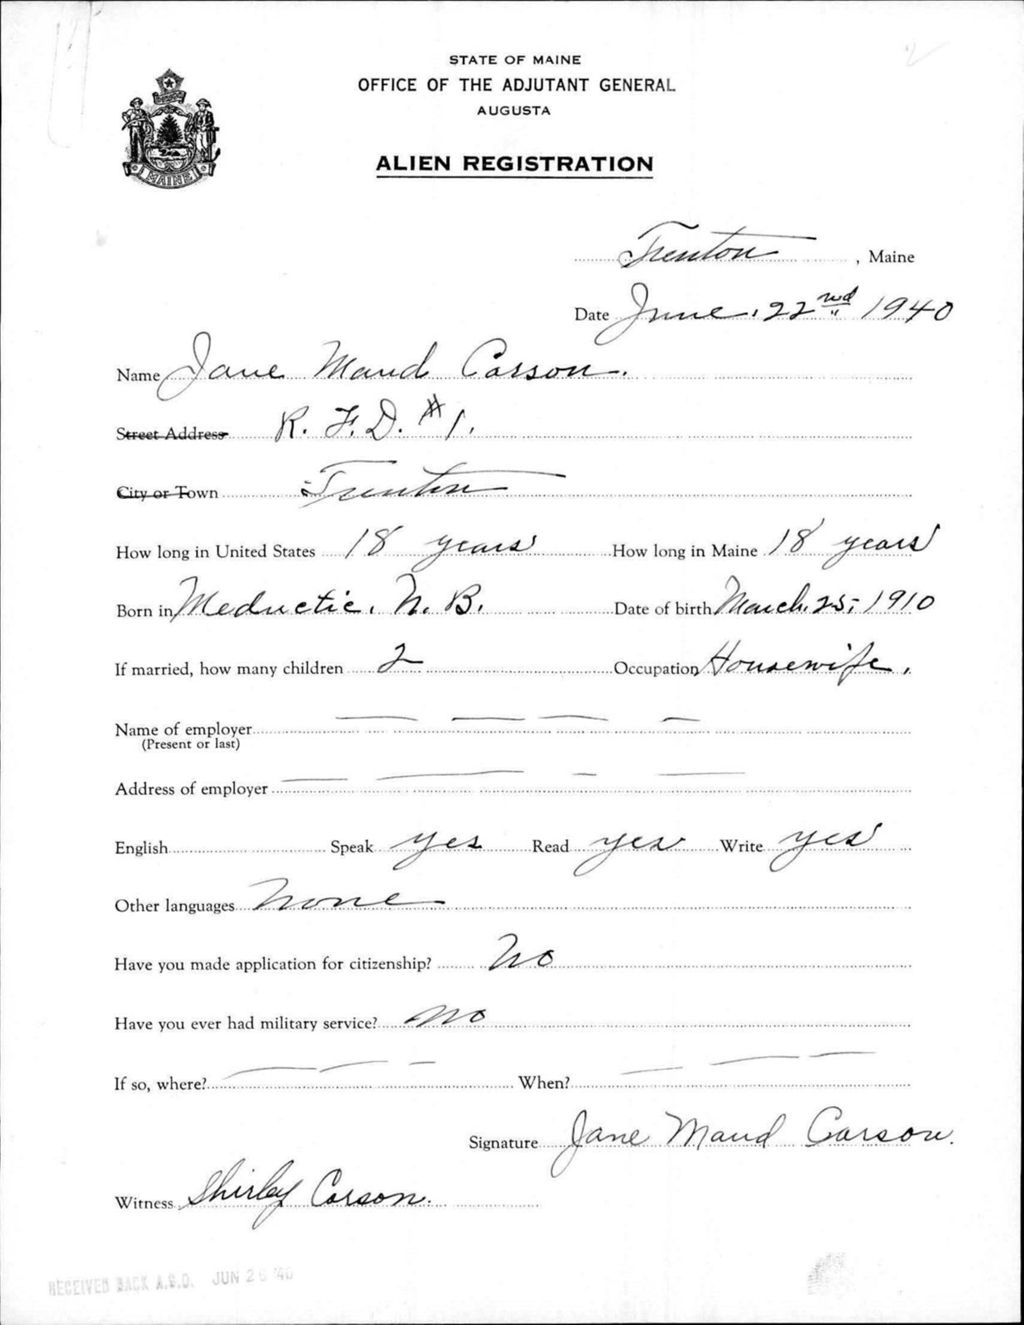 STATE OF MAINE
OFFICE OF THE ADJUTANT GENERAL
AUGUSTA
ALIEN REGISTRATION
MAINE
Trenton, Maine
Date June. 22nd 1940
Name Jane Maud Corson.
Street Address R. F. D. #1.
City or Town Trenton
How long in United States 18 years How long in Maine 18 years
Born in Meductic. N. B. Date of birth March. 25, 1910
If married, how many children 2 Occupation Housewife.
Name of employer
(Present or last)
Address of employer
English Speak yes Read yes Write yes
Other languages None
Have you made application for citizenship? No
Have you ever had military service? No
If so, where? When?
Signature Jane Maud Corson.
Witness Shirley Corson.
RECEIVED BACK A.G.O. JUN 26 '40